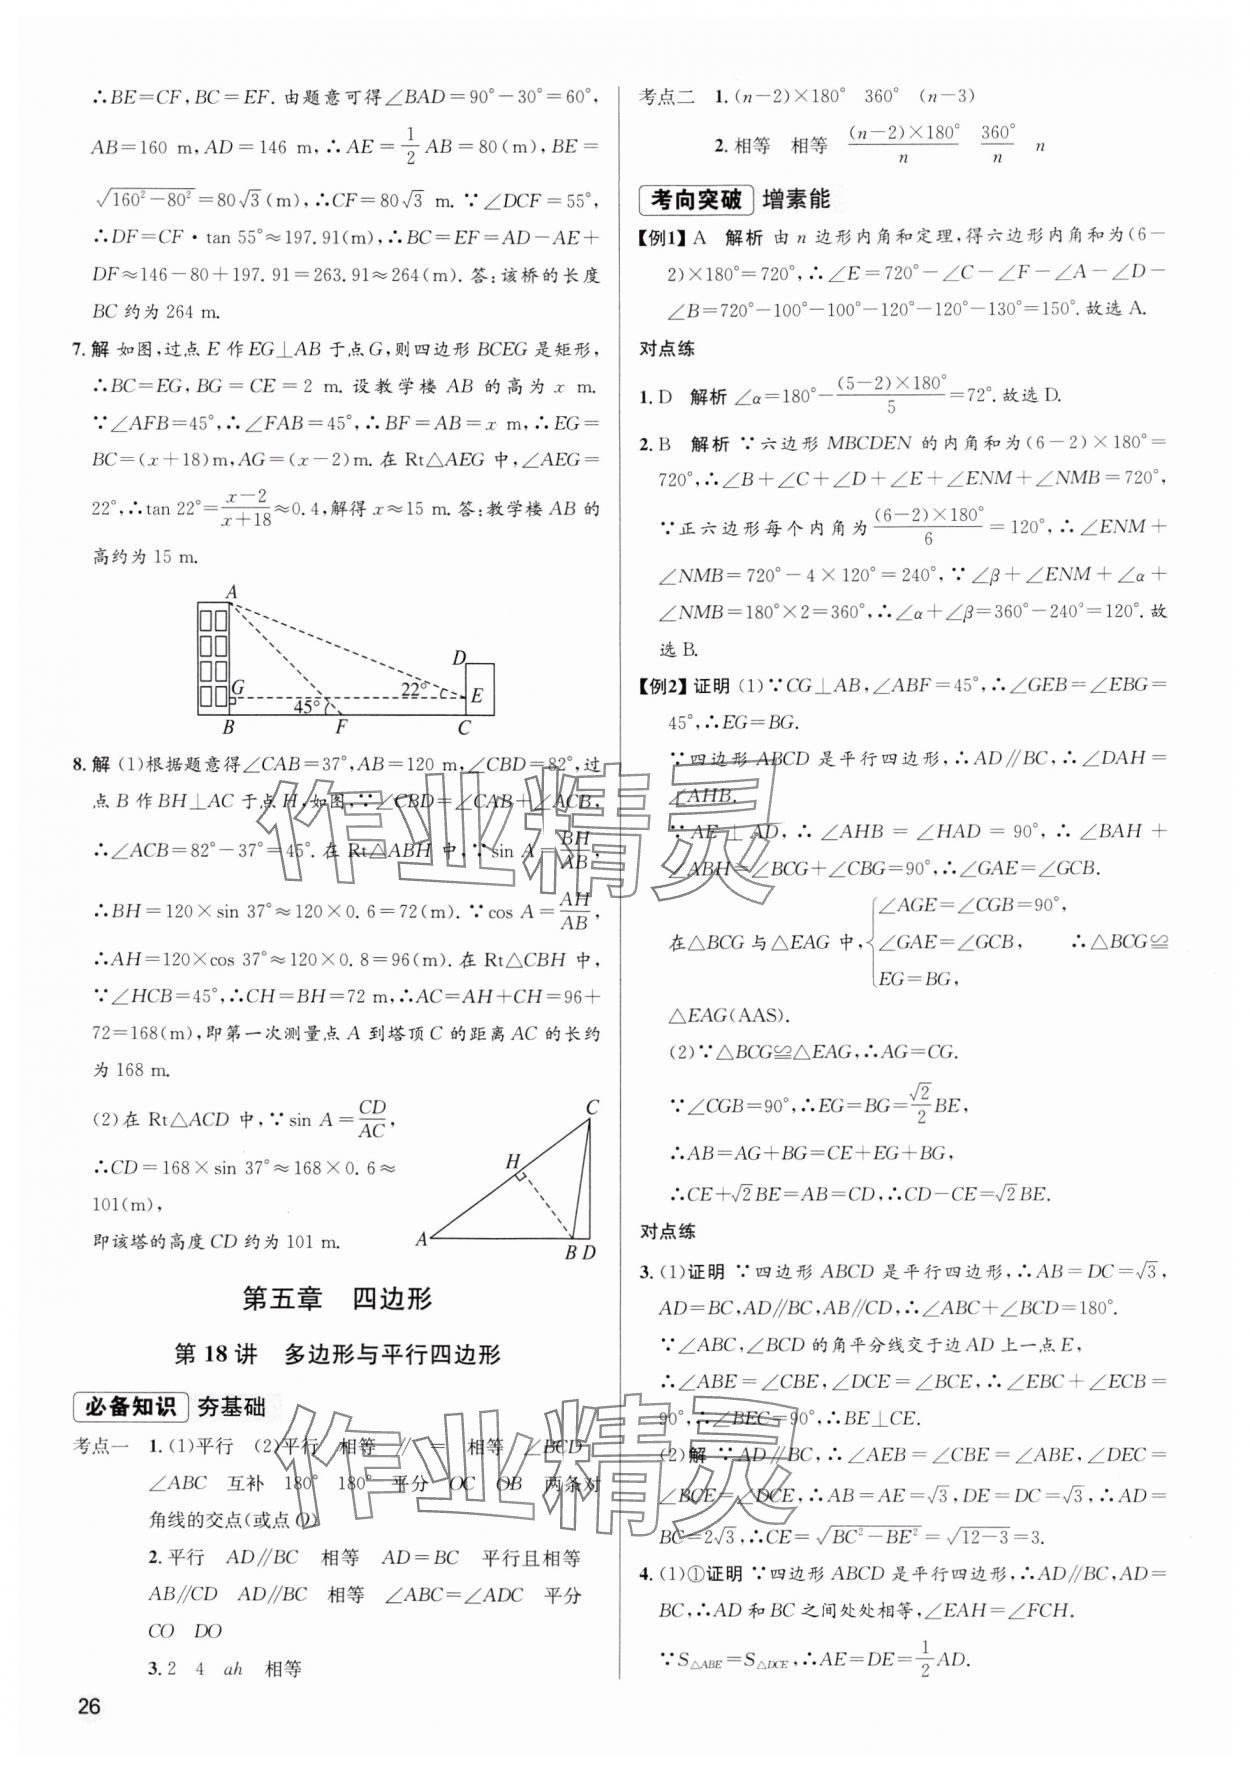 ∴BE=CF,BC=EF.由题意可得∠BAD=90°-30°=60°,
AB=160 m,AD=146 m,∴AE=1/2 AB=80(m),BE=
√(160²-80²)=80√3(m),∴CF=80√3 m.∵∠DCF=55°,
∴DF=CF·tan 55°≈197.91(m),∴BC=EF=AD-AE+
DF≈146-80+197.91=263.91≈264(m).答:该桥的长度
BC约为264 m.
7.解 如图,过点E作EG⊥AB于点G,则四边形BCEG是矩形,
∴BC=EG,BG=CE=2 m.设教学楼AB的高为x m.
∵∠AFB=45°,∴∠FAB=45°,∴BF=AB=x m,∴EG=
BC=(x+18)m,AG=(x-2)m.在Rt△AEG中,∠AEG=
22°,∴tan 22°=(x-2)/(x+18)≈0.4,解得x≈15 m.答:教学楼AB的
高约为15 m.
A
D
G 22° E
45°
B F C
8.解 (1)根据题意得∠CAB=37°,AB=120 m,∠CBD=82°,过
点B作BH⊥AC于点H,如图,∵∠CBD=∠CAB+∠ACB,
∴∠ACB=82°-37°=45°.在Rt△ABH中,∵sin A=BH/AB,
∴BH=120×sin 37°≈120×0.6=72(m).∵cos A=AH/AB,
∴AH=120×cos 37°≈120×0.8=96(m).在Rt△CBH中,
∵∠HCB=45°,∴CH=BH=72 m,∴AC=AH+CH=96+
72=168(m),即第一次测量点A到塔顶C的距离AC的长约
为168 m.
(2)在Rt△ACD中,∵sin A=CD/AC,
∴CD=168×sin 37°≈168×0.6≈
101(m),
即该塔的高度CD约为101 m.
C
H
A B D
第五章 四边形
第18讲 多边形与平行四边形
必备知识 夯基础
考点一 1.(1)平行 (2)平行 相等 ∥ = 相等 ∠BCD
∠ABC 互补 180° 180° 平分 OC OB 两条对
角线的交点(或点O)
2.平行 AD∥BC 相等 AD=BC 平行且相等
AB∥CD AD∥BC 相等 ∠ABC=∠ADC 平分
CO DO
3.2 4 ah 相等
26
考点二 1.(n-2)×180° 360° (n-3)
2.相等 相等 (n-2)×180°/n 360°/n n
考向突破 增素能
【例1】A 解析 由n边形内角和定理,得六边形内角和为(6-
2)×180°=720°,∴∠E=720°-∠C-∠F-∠A-∠D-
∠B=720°-100°-100°-120°-120°-130°=150°.故选A.
对点练
1.D 解析 ∠α=180°-(5-2)×180°/5=72°.故选D.
2.B 解析 ∵六边形MBCDEN的内角和为(6-2)×180°=
720°,∴∠B+∠C+∠D+∠E+∠ENM+∠NMB=720°,
∵正六边形每个内角为(6-2)×180°/6=120°,∴∠ENM+
∠NMB=720°-4×120°=240°,∵∠β+∠ENM+∠α+
∠NMB=180°×2=360°,∴∠α+∠β=360°-240°=120°.故
选B.
【例2】证明 (1)∵CG⊥AB,∠ABF=45°,∴∠GEB=∠EBG=
45°,∴EG=BG.
∵四边形ABCD是平行四边形,∴AD∥BC,∴∠DAH=
∠AHB.
∵AE⊥AD,∴∠AHB=∠HAD=90°,∴∠BAH+
∠ABH=∠BCG+∠CBG=90°,∴∠GAE=∠GCB.
在△BCG与△EAG中,{∠AGE=∠CGB=90°,
∠GAE=∠GCB,
EG=BG, ∴△BCG≌
△EAG(AAS).
(2)∵△BCG≌△EAG,∴AG=CG.
∵∠CGB=90°,∴EG=BG=√2/2 BE,
∴AB=AG+BG=CE+EG+BG,
∴CE+√2BE=AB=CD,∴CD-CE=√2BE.
对点练
3.(1)证明 ∵四边形ABCD是平行四边形,∴AB=DC=√3,
AD=BC,AD∥BC,AB∥CD,∴∠ABC+∠BCD=180°.
∵∠ABC,∠BCD的角平分线交于边AD上一点E,
∴∠ABE=∠CBE,∠DCE=∠BCE,∴∠EBC+∠ECB=
90°,∴∠BEC=90°,∴BE⊥CE.
(2)解 ∵AD∥BC,∴∠AEB=∠CBE=∠ABE,∠DEC=
∠BCE=∠DCE,∴AB=AE=√3,DE=DC=√3,∴AD=
BC=2√3,∴CE=√(BC²-BE²)=√(12-3)=3.
4.(1)①证明 ∵四边形ABCD是平行四边形,∴AD∥BC,AD=
BC,∴AD和BC之间处处相等,∠EAH=∠FCH.
∵S△ABE=S△DCE,∴AE=DE=1/2 AD.
作业精灵
作业精灵